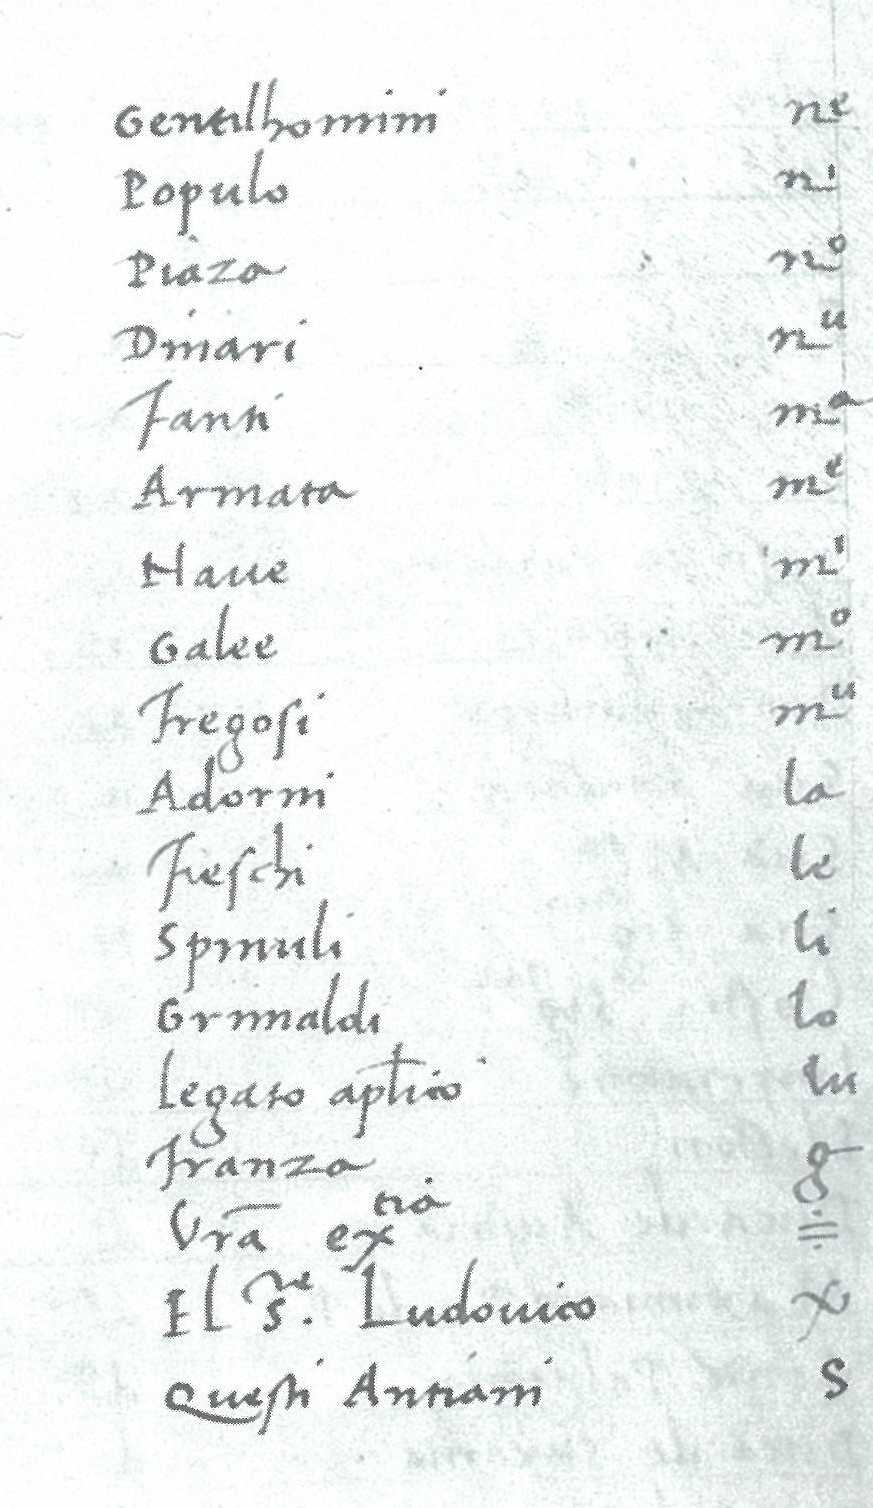 Gentilhomini nᵉ
Populo nⁱ
Piaza nᵒ
Dinari nᵘ
Fanti mᵃ
Armata mᵉ
Naue mⁱ
Galee mᵒ
Fregosi mᵘ
Adorni la
Fieschi le
Spinuli li
Grimaldi lo
Legato aplico lu
Franza g
Vrã exᵗⁱᵃ
El S.ʳᵉ Ludouico x
Questi Antiani s